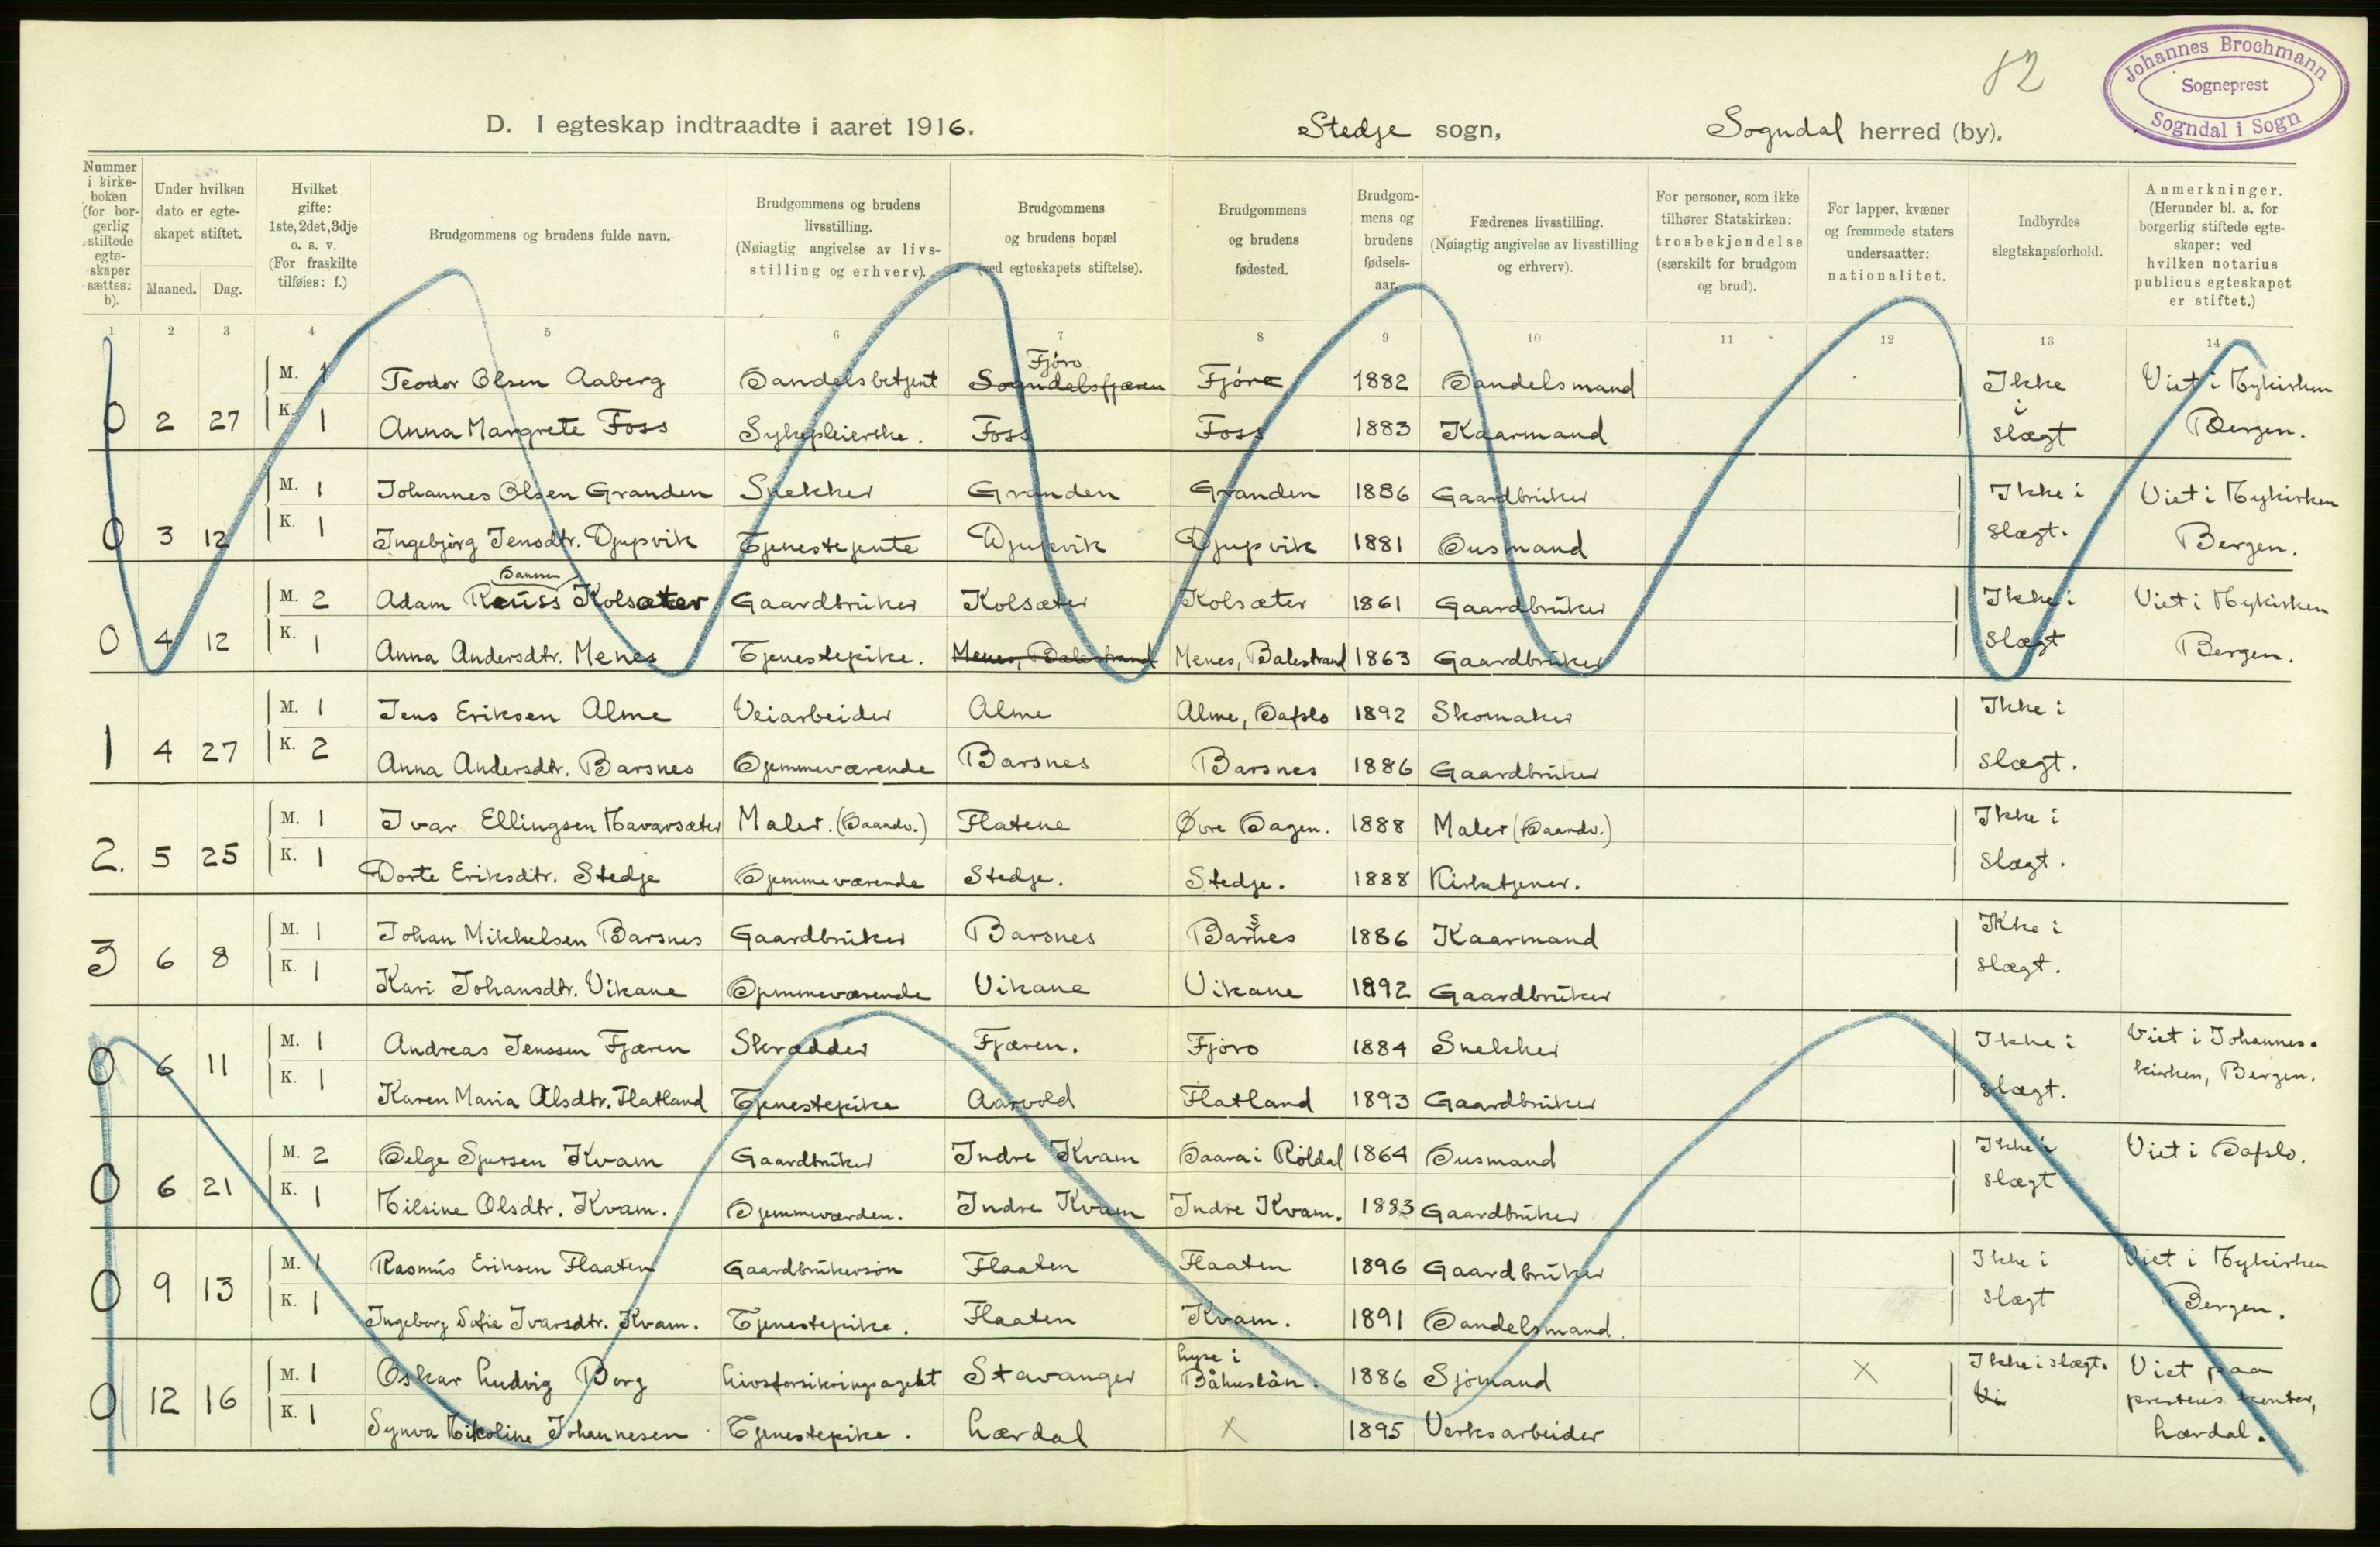 82
Johannes Brochmann
Sogneprest
Sogndal i Sogn
D. I egteskap indtraadte i aaret 1916. Stedje sogn, Sogndal herred (by).
Nummer i kirke-boken (for bor-gerlig stiftede egte-skaper sættes: b).
Under hvilken dato er egte-skapet stiftet.
Maaned. Dag.
Hvilket gifte: 1ste, 2det, 3dje o. s. v. (For fraskilte tilføies: f.)
Brudgommens og brudens fulde navn.
Brudgommens og brudens livsstilling. (Nøiagtig angivelse av livs-stilling og erhverv).
Brudgommens og brudens bopæl (ved egteskapets stiftelse).
Brudgommens og brudens fødested.
Brudgom-mens og brudens fødsels-aar.
Fædrenes livsstilling. (Nøiagtig angivelse av livsstilling og erhverv).
For personer, som ikke tilhører Statskirken: trosbekjendelse (særskilt for brudgom og brud).
For lapper, kvæner og fremmede staters undersaatter: nationalitet.
Indbyrdes slegtskapsforhold.
Anmerkninger. (Herunder bl. a. for borgerlig stiftede egte-skaper: ved hvilken notarius publicus egteskapet er stiftet.)
1 2 3 4 5 6 7 8 9 10 11 12 13 14
Fjöro
M. 1 Teodor Olsen Aaberg Handelsbetjent Sogndalsfjæren Fjöro 1882 Handelsmand Ikke i Viet i Nykirken
0 2 27 K. 1 Anna Margrete Foss Sykepleierske. Foss Foss 1883 Kaarmand slægt Bergen.
M. 1 Johannes Olsen Granden Snekker Granden Granden 1886 Gaardbrüker Ikke i Viet i Nykirken
0 3 12 K. 1 Ingebjörg Jensdtr. Djupvik Tjenestejente Djupvik Djupvik 1881 Husmand slægt. Bergen.
Hansen
M. 2 Adam Kolsæter Gaardbrüker Kolsæter Kolsæter 1861 Gaardbrüker Ikke i Viet i Nykirken
0 4 12 K. 1 Anna Andersdtr. Menes Tjenestepike. Menes, Balestrand Menes, Balestrand 1863 Gaardbrüker slægt Bergen.
M. 1 Jens Eriksen Alme Veiarbeider Alme Alme, Hafslo 1892 Skomaker Ikke i
1 4 27 K. 2 Anna Andersdtr. Barsnes Hjemmeværende Barsnes Barsnes 1886 Gaardbrüker slægt.
M. 1 Ivar Ellingsen Navarsæter Maler. (Haandv.) Flatene Øvre Hagen. 1888 Maler (Haandv.) Ikke i
2. 5 25 K. 1 Dorte Eriksdtr. Stedje Hjemmeværende Stedje. Stedje. 1888 Kirketjener. slægt.
M. 1 Johan Mikkelsen Barsnes Gaardbrüker Barsnes Barsnes 1886 Kaarmand Ikke i
3 6 8 K. 1 Kari Johansdtr. Vikane Hjemmeværende Vikane Vikane 1892 Gaardbrüker slægt.
M. 1 Andreas Jenssen Fjæren Skrædder Fjæren. Fjöro 1884 Snekker Ikke i Viet i Johannes-
0 6 11 K. 1 Karen Maria Olsdtr. Flatland Tjenestepike Aarvold Flatland 1893 Gaardbrüker slægt. kirken, Bergen.
M. 2 Helge Sjursen Kvam Gaardbrüker Indre Kvam Haara i Röldal 1864 Husmand Ikke i Viet i Hafslo.
0 6 21 K. 1 Nilsine Olsdtr. Kvam. Hjemmeværden. Indre Kvam Indre Kvam. 1883 Gaardbrüker slægt
M. 1 Rasmüs Eriksen Flaaten Gaardbrükersön Flaaten Flaaten 1896 Gaardbrüker Ikke i Viet i Nykirken
0 9 13 K. 1 Ingeborg Sofie Ivarsdtr. Kvam. Tjenestepike. Flaaten Kvam. 1891 Handelsmand. slægt Bergen.
M. 1 Oskar Ludvig Borg Livsforsikringsagent Stavanger Lyse i Båhuslän. 1886 Sjömand X Ikke i slægt. Viet paa
0 12 16 K. 1 Synva Nikoline Johannesen Tjenestepike. Lærdal X 1895 Verksarbeider Vi prestens kontor,
Lærdal.